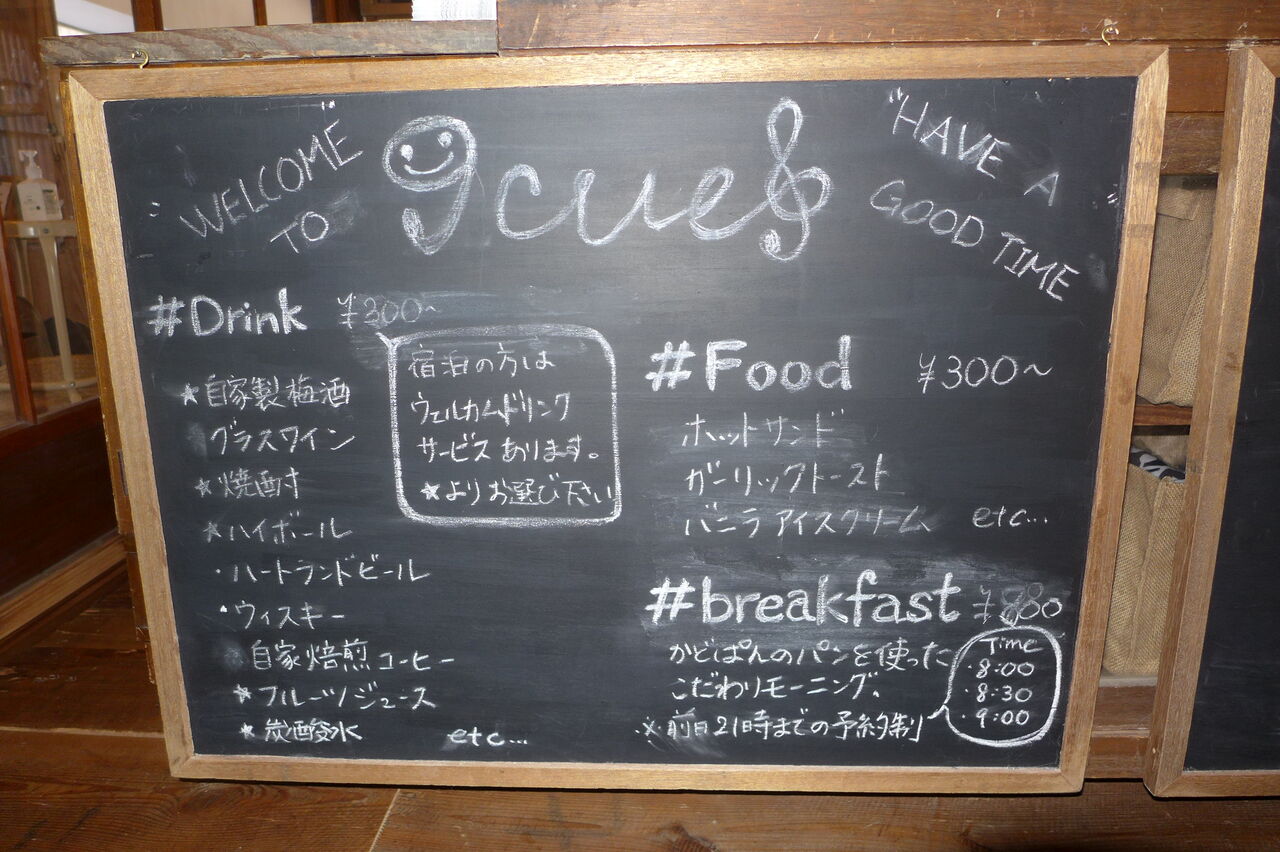 "WELCOME"
TO
gcue
"HAVE A
GOOD TIME"
#Drink ¥300~
★自家製梅酒
グラスワイン
★焼酎
★ハイボール
・ハートランドビール
・ウィスキー
自家焙煎コーヒー
★フルーツジュース
★炭酸水
etc...
宿泊の方は
ウェルカムドリンク
サービスあります。
★よりお選び下さい
#Food ¥300~
ホットサンド
ガーリックトースト
バニラアイスクリーム etc...
#breakfast ¥800
かどぱんのパンを使った
こだわりモーニング。
※前日21時までの予約制
Time
・8:00
・8:30
・9:00